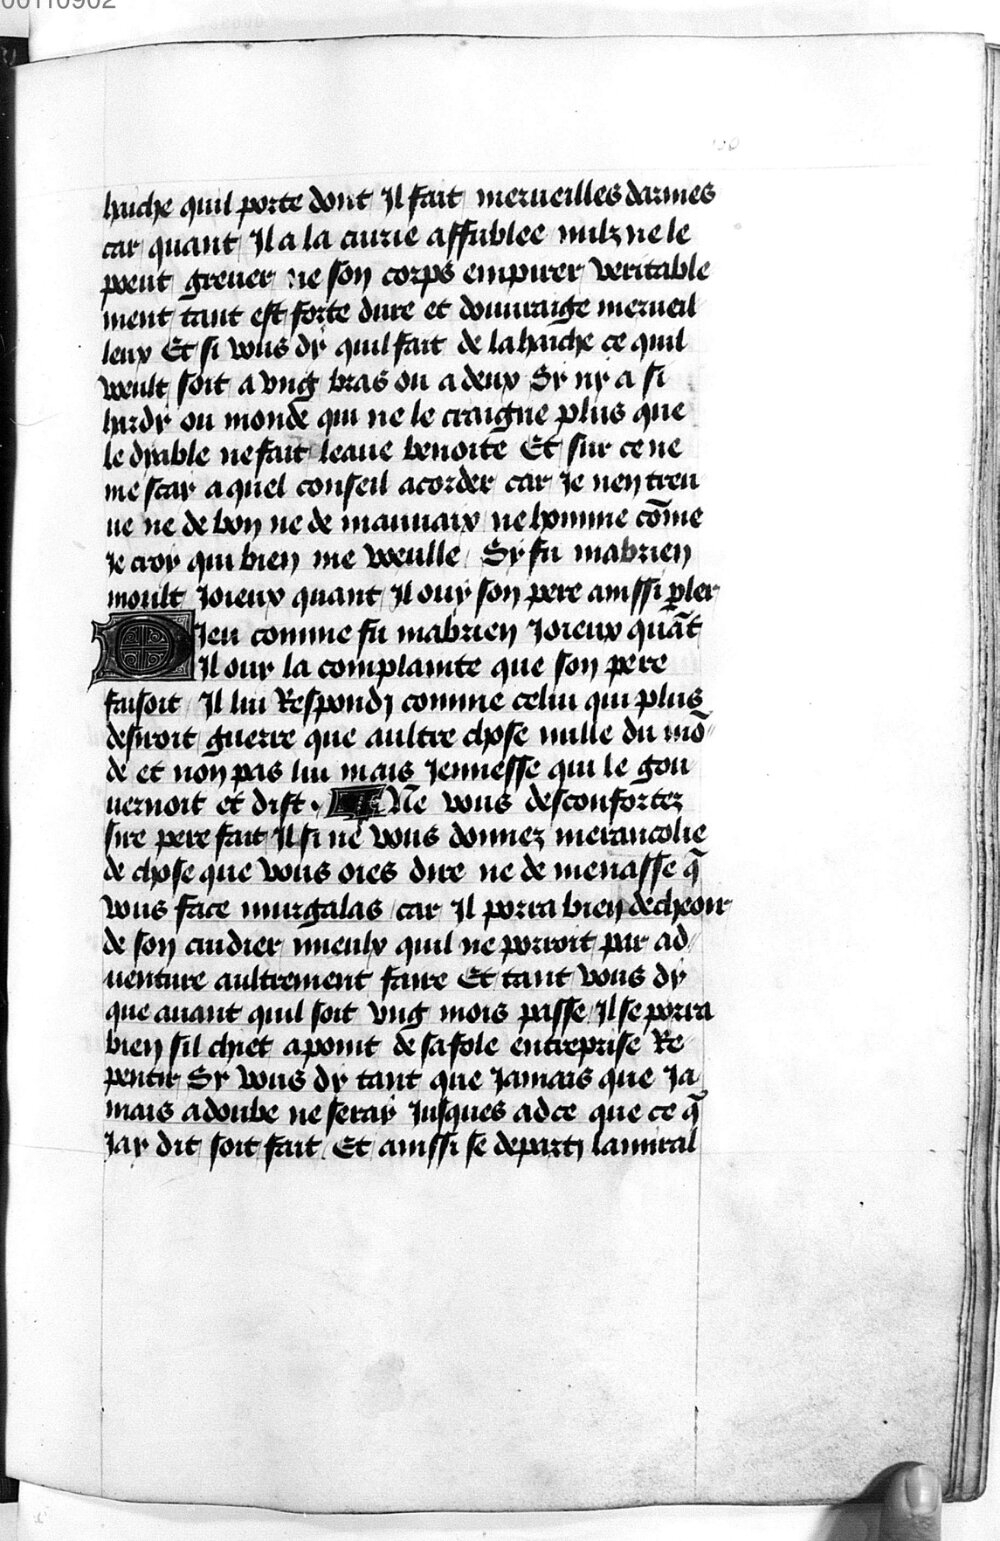 00110902
haiche quil porte dont Il fait merueilles darmes
car quant Il a la cuirie affublee nulz ne le
poeut greuer ne son corps empirer veritable
ment tant est forte dure et douuraige merueil
leux Et si vous dy quil fait de la haiche ce quil
veult soit a vng bras ou a deux Sy ny a si
hardy ou monde qui ne le craigne plus que
le dyable ne fait leaue benoite Et sur ce ne
me scay a quel conseil acorder car Je nen treu
ue ne de bon ne de mauuaix ne homme cōme
Je croy qui bien me veulle Sy fu mabrien
moult Joieux quant Il ouy son pere ainssi p̲ler
Dieu comme fu mabrien Joieux quāt
Il ouy la complainte que son pere
faisoit Il lui Respondy comme celui qui plus
desiroit guerre que aultre chose nulle du mō
de et non pas lui mais Jennesse qui le gou
uernoit et dist . Ne vous desconfortez
sire pere fait Il si ne vous donnez merancolie
de chose que vous oies dire ne de menasse q̄
vous face murgalas car Il porra bien decheoir
de son cuidier mieulx quil ne porroit par ad
uenture aultrement faire Et tant vous dy
que auant quil soit vng mois passe Il se porra
bien sil chiet a point de sa fole entreprise Re
pentir Sy vous dy tant que Jamais que Ja
mais adoube ne seray Jusques ad ce que ce q̄
Jay dit soit fait Et ainssi se departy lamiral